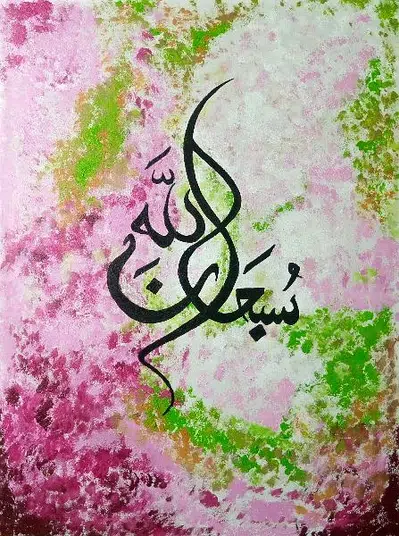 سُبحَانَ اللَّه